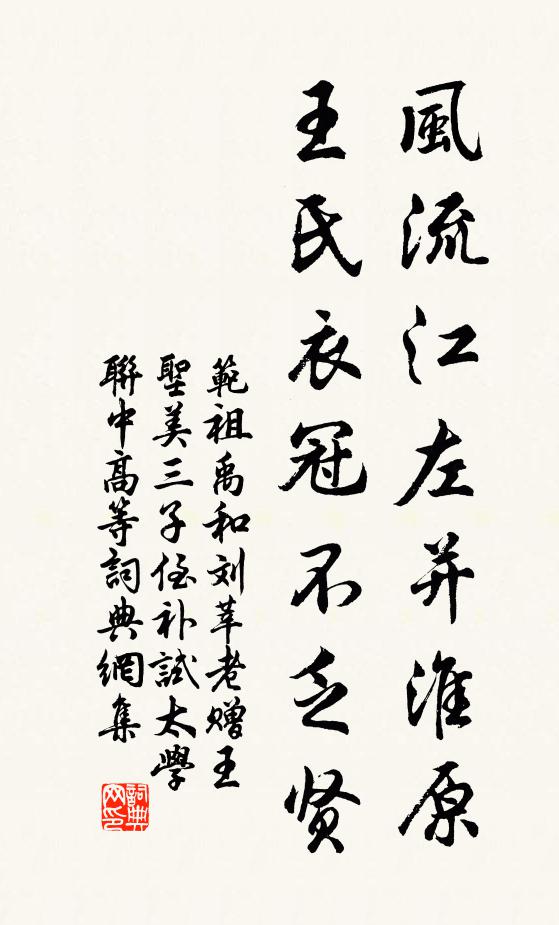 風流江左并淮原
王氏衣冠不乏贤
範祖禹和刘莘老赠王
聖美三子侄补試太學
聯中高等詞典網集
詞典
网印